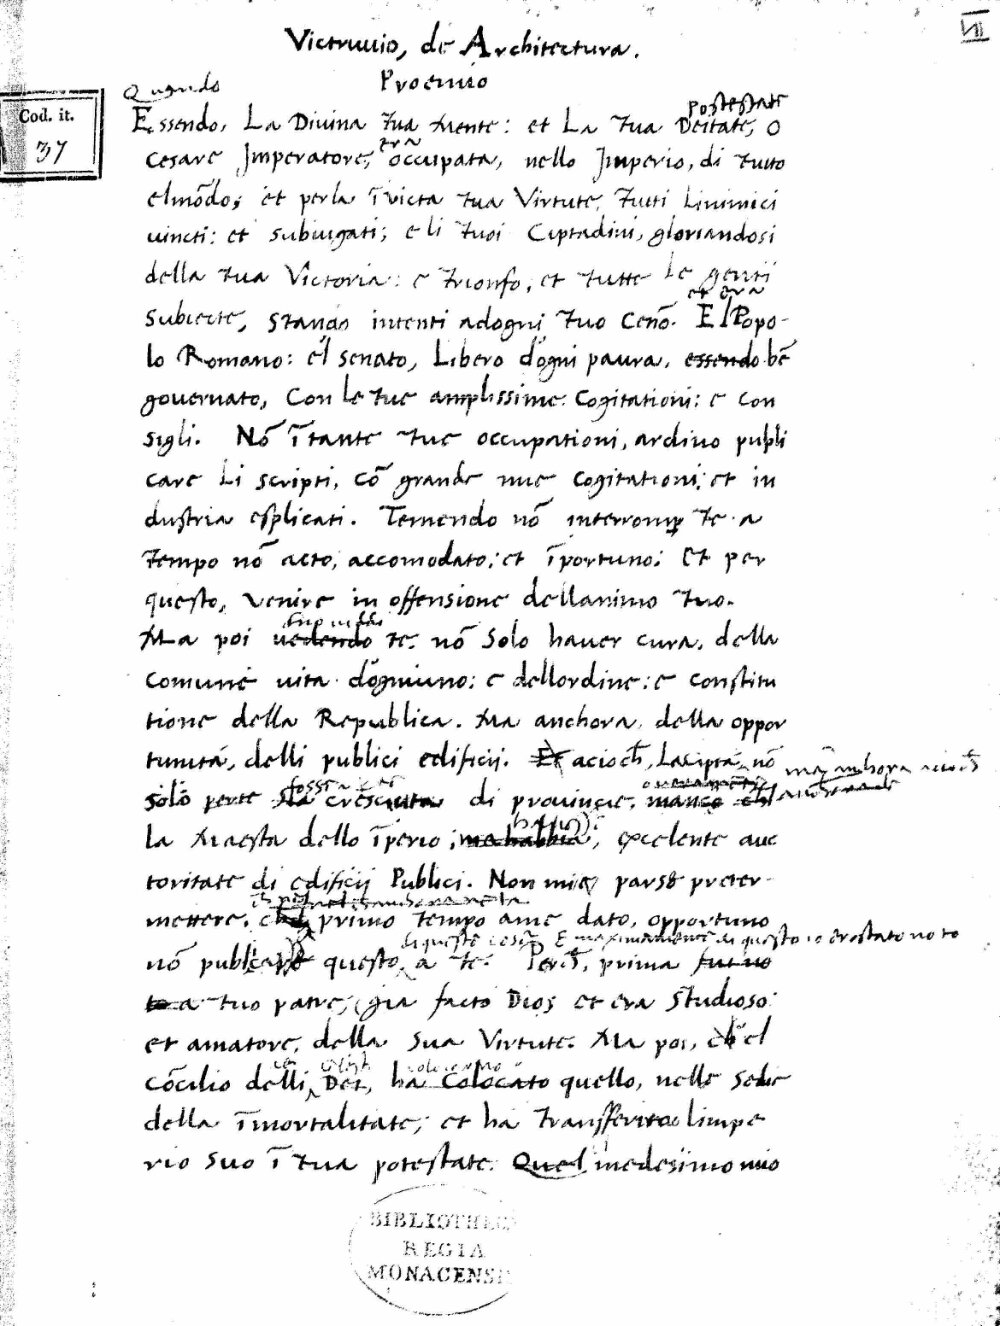 VII
Victruuio, de Architectura.
Proemio
Cod. it.
37
Quando
Postestate
Essendo, La Diuina tua mente: et La tua Deitate, o
era
Cesare Jmperatore, occupata, nello Jmperio, di tutto
elmōdo; et perla īuicta tua Virtute, tutti Linimici
uincti: et subiugati; e li tuoi Ciptadini, gloriandosi
della tua Victoria: e trionfo, et tutte Le genti
et era
Subiecte, stando intenti adognj tuo Cenō. El Popo-
lo Romano: el senato, Libero dogni paura, essendo bē
gouernato, Con le tue amplissime Cogitationi: e con
sigli. Nō ītante tue occupationi, ardiuo publi
care Li scripti, cō grande mie Cogitationi; et in
dustria esplicati. Temendo nō interromp te a
tempo nō acto, accomodato; et īportuno: Et per
questo, venire in offensione dellanimo tuo.
Ma poi uedendo te. nō solo hauer cura, della
Comune uita dogniuno: e dellordine: e constitu
tione della Republica. Ma anchora, della oppor
tunità, delli publici edificij. Et acioch, Lacipta, nō
solo perte sia cresciuta di prouincie, manco
la Maesta dello īperio, me habbia, excelente auc
toritate di edificij Publici. Non mi parse preter-
mettere, primo tempo ame dato, opportuno
di queste cose E maximamente di questo io ero stato noto
nō publicare questo, a te. Perch, prima fui no
to a tuo patre, gia facto Dios et era studioso
et amatore, della sua Virtute. Ma poi, ch el
Cōcilio delli Dei, ha Colocato quello, nelle sedie
della īmortalitate; et ha transfferito limpe
rio suo ī tua potestate. Quel medesimo mio
BIBLIOTHECA
REGIA
MONACENSIS